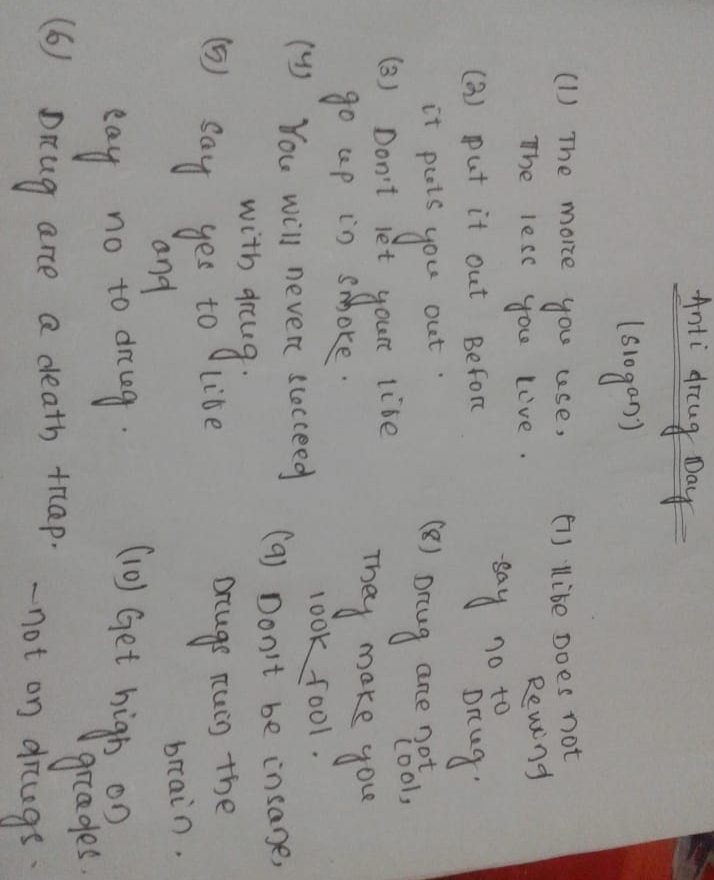 Anti drug Day
(slogan)
(1) The more you use,
The less you live.
(2) Put it out Before
it puts you out.
(3) Don't let your life
go up in smoke.
(4) You will never succeed
with drug.
(5) say yes to life
and
say no to drug.
(6) Drug are a death trap.
(7) life Does not
Rewind
-say no to
Drug.
(8) Drug are not
cool,
They make you
look fool.
(9) Don't be insane,
Drugs ruin the
brain.
(10) Get high on
grades.
-not on drugs.